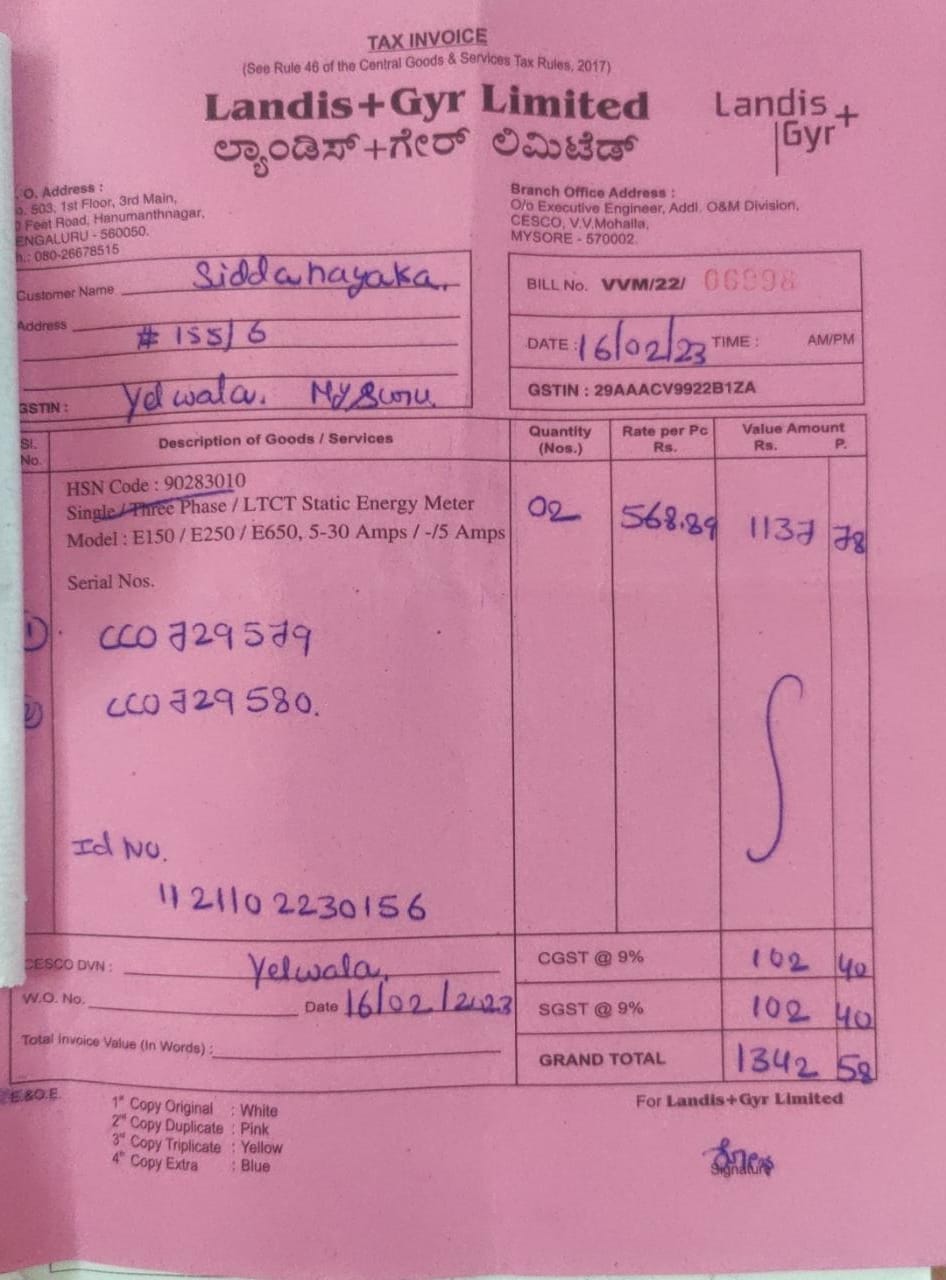 TAX INVOICE
(See Rule 46 of the Central Goods & Services Tax Rules, 2017)
Landis+Gyr Limited
ಲ್ಯಾಂಡಿಸ್+ಗೇರ್ ಲಿಮಿಟೆಡ್
Landis+
Gyr
.O. Address :
o. 503, 1st Floor, 3rd Main,
0 Feet Road, Hanumanthnagar,
ENGALURU - 560050.
h.: 080-26678515
Branch Office Address :
O/o Executive Engineer, Addl. O&M Division,
CESCO, V.V.Mohalla,
MYSORE - 570002.
Customer Name Siddanayaka.
Address # 155/6
Yelwala. Mysuru
GSTIN :
BILL No. VVM/22/ 06998
DATE : 16/02/23 TIME : AM/PM
GSTIN : 29AAACV9922B1ZA
Sl. No. Description of Goods / Services Quantity (Nos.) Rate per Pc Rs. Value Amount Rs. P.
HSN Code : 90283010
Single / Three Phase / LTCT Static Energy Meter 02 568.89 1137 78
Model : E150 / E250 / E650, 5-30 Amps / -/5 Amps
Serial Nos.
1) CC0729579
2) CC0729580.
Id No.
1121102230156
CESCO DVN : Yelwala.
W.O. No. Date 16/02/2023
Total Invoice Value (In Words) :
CGST @ 9% 102 40
SGST @ 9% 102 40
GRAND TOTAL 1342 58
E.&O.E.
1st Copy Original : White
2nd Copy Duplicate : Pink
3rd Copy Triplicate : Yellow
4th Copy Extra : Blue
For Landis+Gyr Limited
Signature